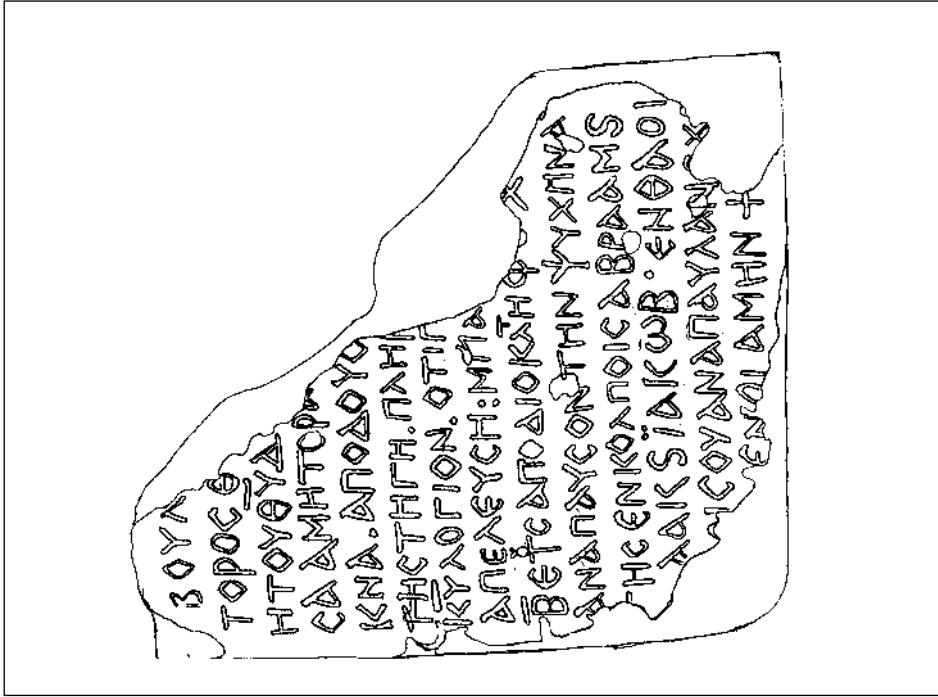 ΟΥΛ
ΤΟΡΟC Θ
ΗΤΟΥΘΥΔ
CΑΔΜΗΤΟΡ
ΚΝΑ·ΑΠΟΔΟΥC
ΤΗCΤΗΓΗ·ΠΛΗ
ΚΥΛΟΓΙΟΝ·ΟΤΙΓ
ΑΠΕΛΕΥCΗ:ΜΠΑ
ΒΕΤC ΑΠΟΔΙΟΚΑΤΗΦ
ΑΝΑΠΑΥCΟΝΤΗΝΨΥΧΗΝΑ
ΤΗCΕΝΚΟΛΠΟΙCΑΒΡΑΑΜS
ΑΑΚSΪΑΚѠΒ·ΕΝΘΑΟΙ
ΙCΟΥΑΝΑΠΑΥΛΑΝ
ΕΝΑΙ ΑΜΗΝ +